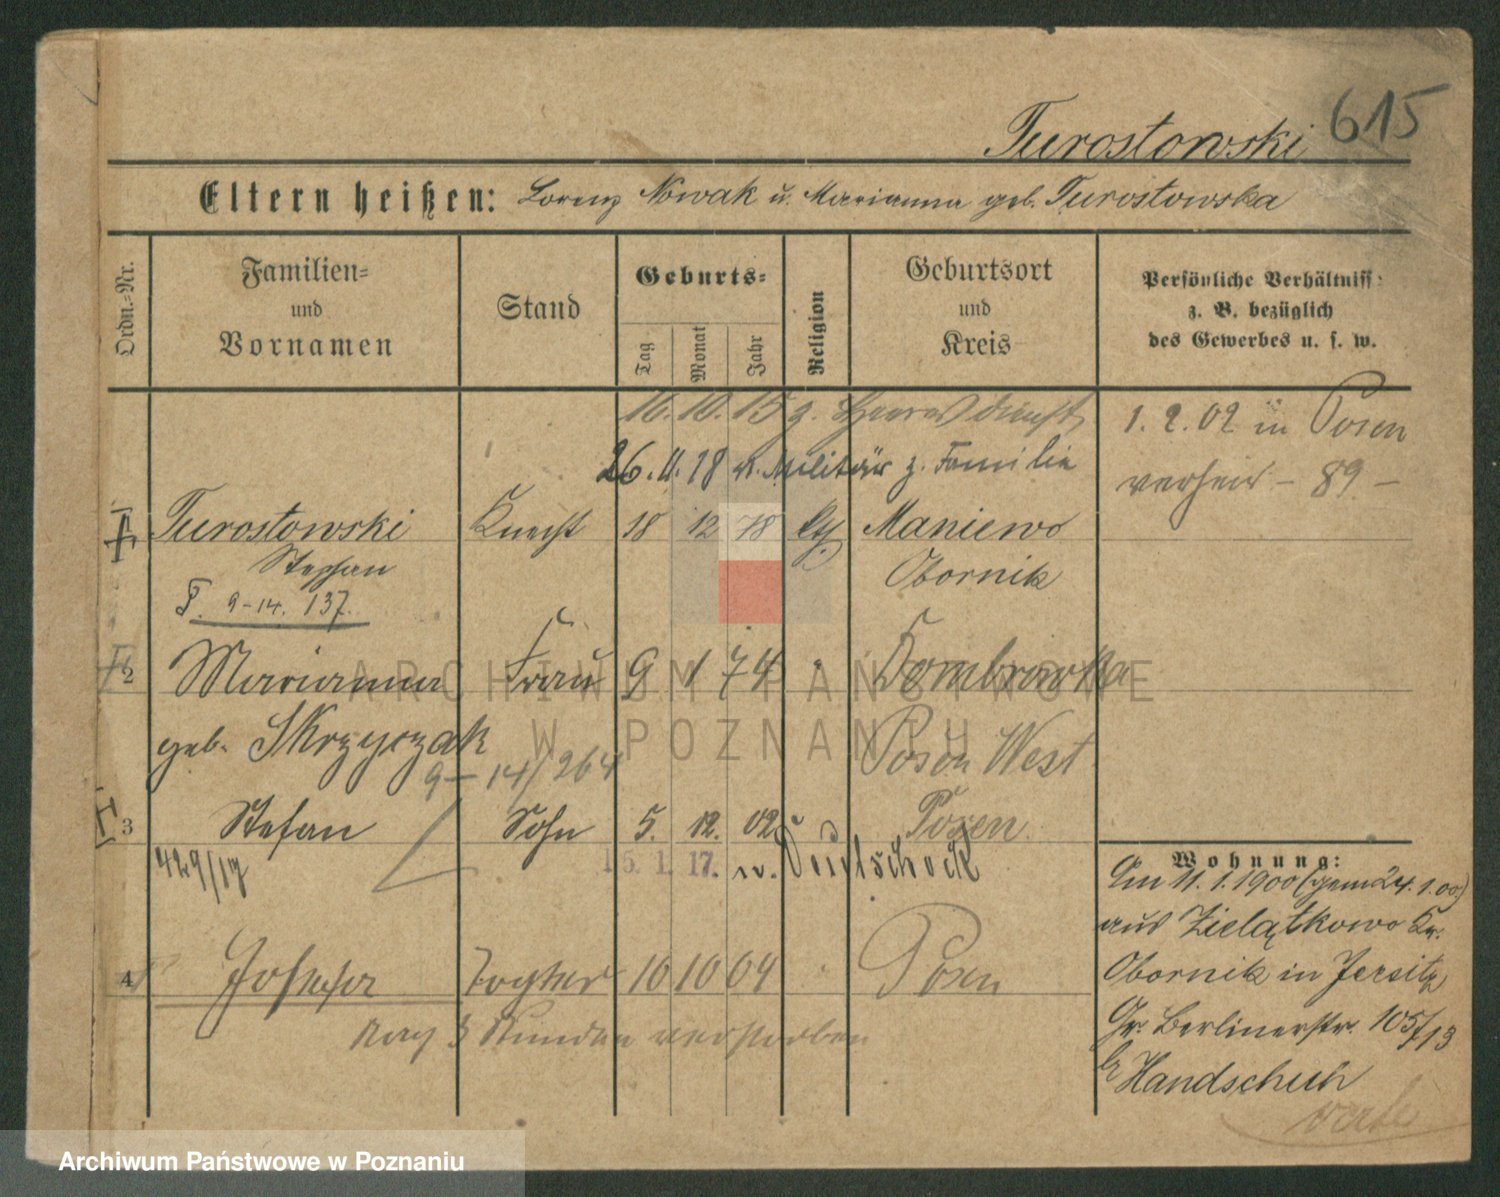 615
Turostowski
Eltern heißen: Lorenz Nowak u. Marianna geb. Turostowska
Ordn.-Nr.
Familien-
und
Vornamen
Stand
Geburts-
Tag
Monat
Jahr
Religion
Geburtsort
und
Kreis
Persönliche Verhältniss
z. B. bezüglich
des Gewerbes u. s. w.
16. 10. 15 z. Heeresdienst
26. 11. 18 v. Militär z. Familie
1. 2. 02 in Posen
verheir – 89 –
Turostowski Knecht 18 12 78 Maniewo
Stephan Obornik
9-14. 137.
2 Marianna Frau 9 1 74 Dombrowka
geb. Skrzypczak Posen West
9-14/264
3 Stefan Sohn 5. 12. 02 Posen
429/17 15. 1. 17. n. Deutschock
4 Josefa Tochter 10 10 04 Posen
nach 3 Stunden verstorben
Wohnung:
Am 11. 1. 1900 (gem 24. 1. 00)
aus Zielątkowo Kr.
Obornik in Jersitz
Gr. Berlinerstr. 105/13
Handschuh
ARCHIWUM PAŃSTWOWE
W POZNANIU
Archiwum Państwowe w Poznaniu